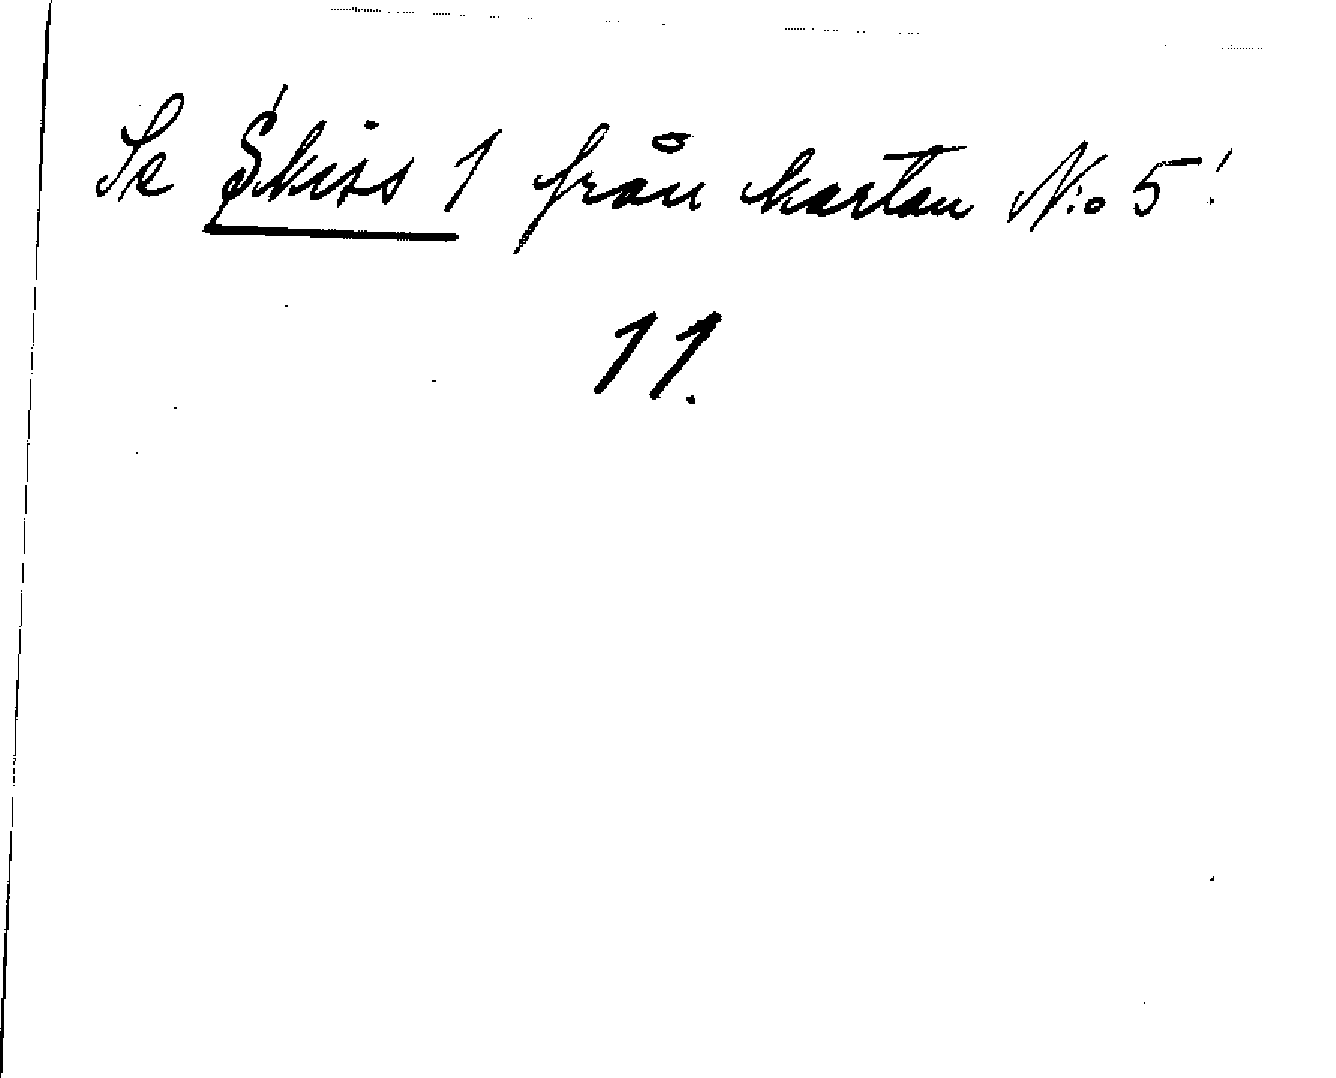 Se Skiss 1 från kartan N:o 5!
11.